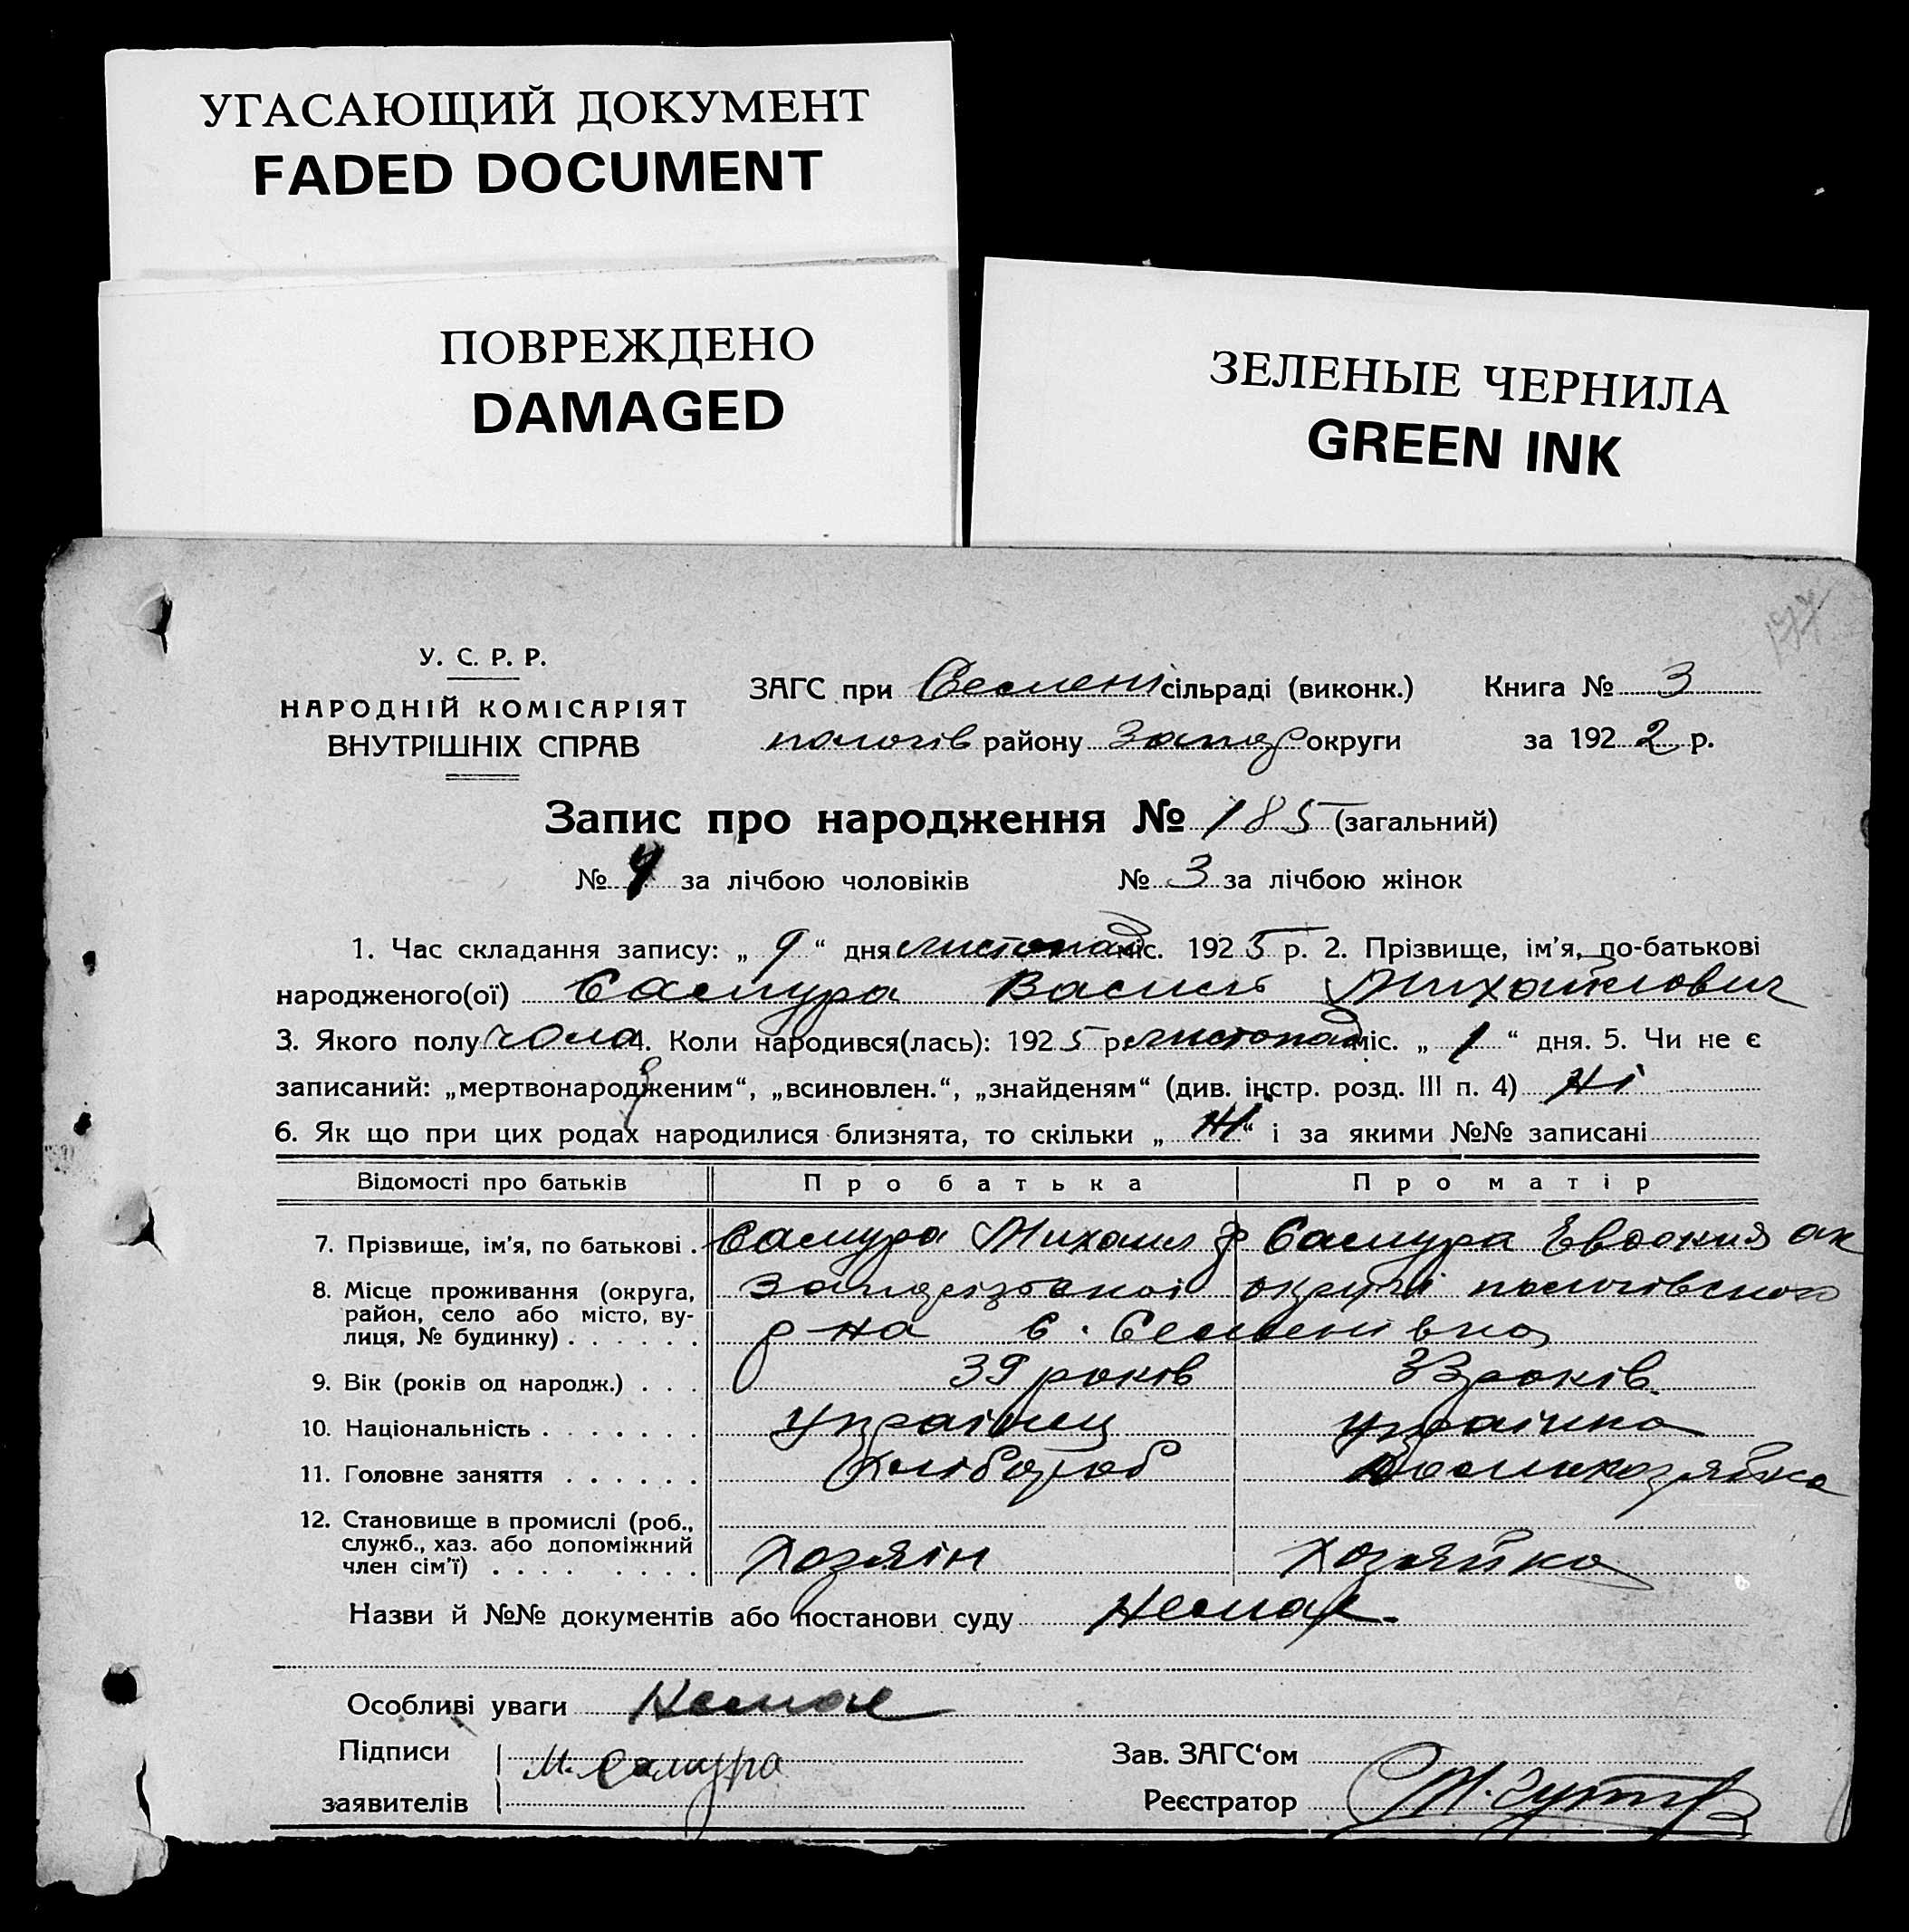 УГАСАЮЩИЙ ДОКУМЕНТ
FADED DOCUMENT
ПОВРЕЖДЕНО
DAMAGED
ЗЕЛЕНЫЕ ЧЕРНИЛА
GREEN INK
177
У. С. Р. Р.
НАРОДНІЙ КОМІСАРІЯТ
ВНУТРІШНІХ СПРАВ
ЗАГС при Семені сільраді (виконк.) Книга № 3
пологів району Запор округи за 192 2 р.
Запис про народження № 185 (загальний)
№ 4 за лічбою чоловіків № 3 за лічбою жінок
1. Час складання запису: „ 9 “ дня листопад міс. 192 5 р. 2. Прізвище, ім'я, по-батькові
народженого(ої) Самура Василь Михайлович
3. Якого полу чолов 4. Коли народився(лась): 192 5 р. листопад міс. „ 1 “ дня. 5. Чи не є
записаний: „мертвонародженим“, „всиновлен.“, „знайденям“ (див. інстр. розд. III п. 4) Ні
6. Як що при цих родах народилися близнята, то скільки „ Ні “ і за якими №№ записані
Відомості про батьків Про батька Про матір
7. Прізвище, ім'я, по батькові . Самура Михаил ф Самура Евдокия ак
8. Місце проживання (округа, район, село або місто, вулиця, № будинку) . . . . . . Запорізької округи пологівського
р на с. Семенівка
9. Вік (років од народж.) . . . 39 років 33 років.
10. Національність . . . . . . . українец українка
11. Головне заняття . . . . . . Хлібороб Домохозяйка
12. Становище в промислі (роб., служб., хаз. або допоміжний член сім'ї) . . . . . . . . Хозяін Хозяйка
Назви й №№ документів або постанови суду Немає.
Особливі уваги Немає
Підписи М. Самура Зав. ЗАГС‘ом
заявителів Реєстратор